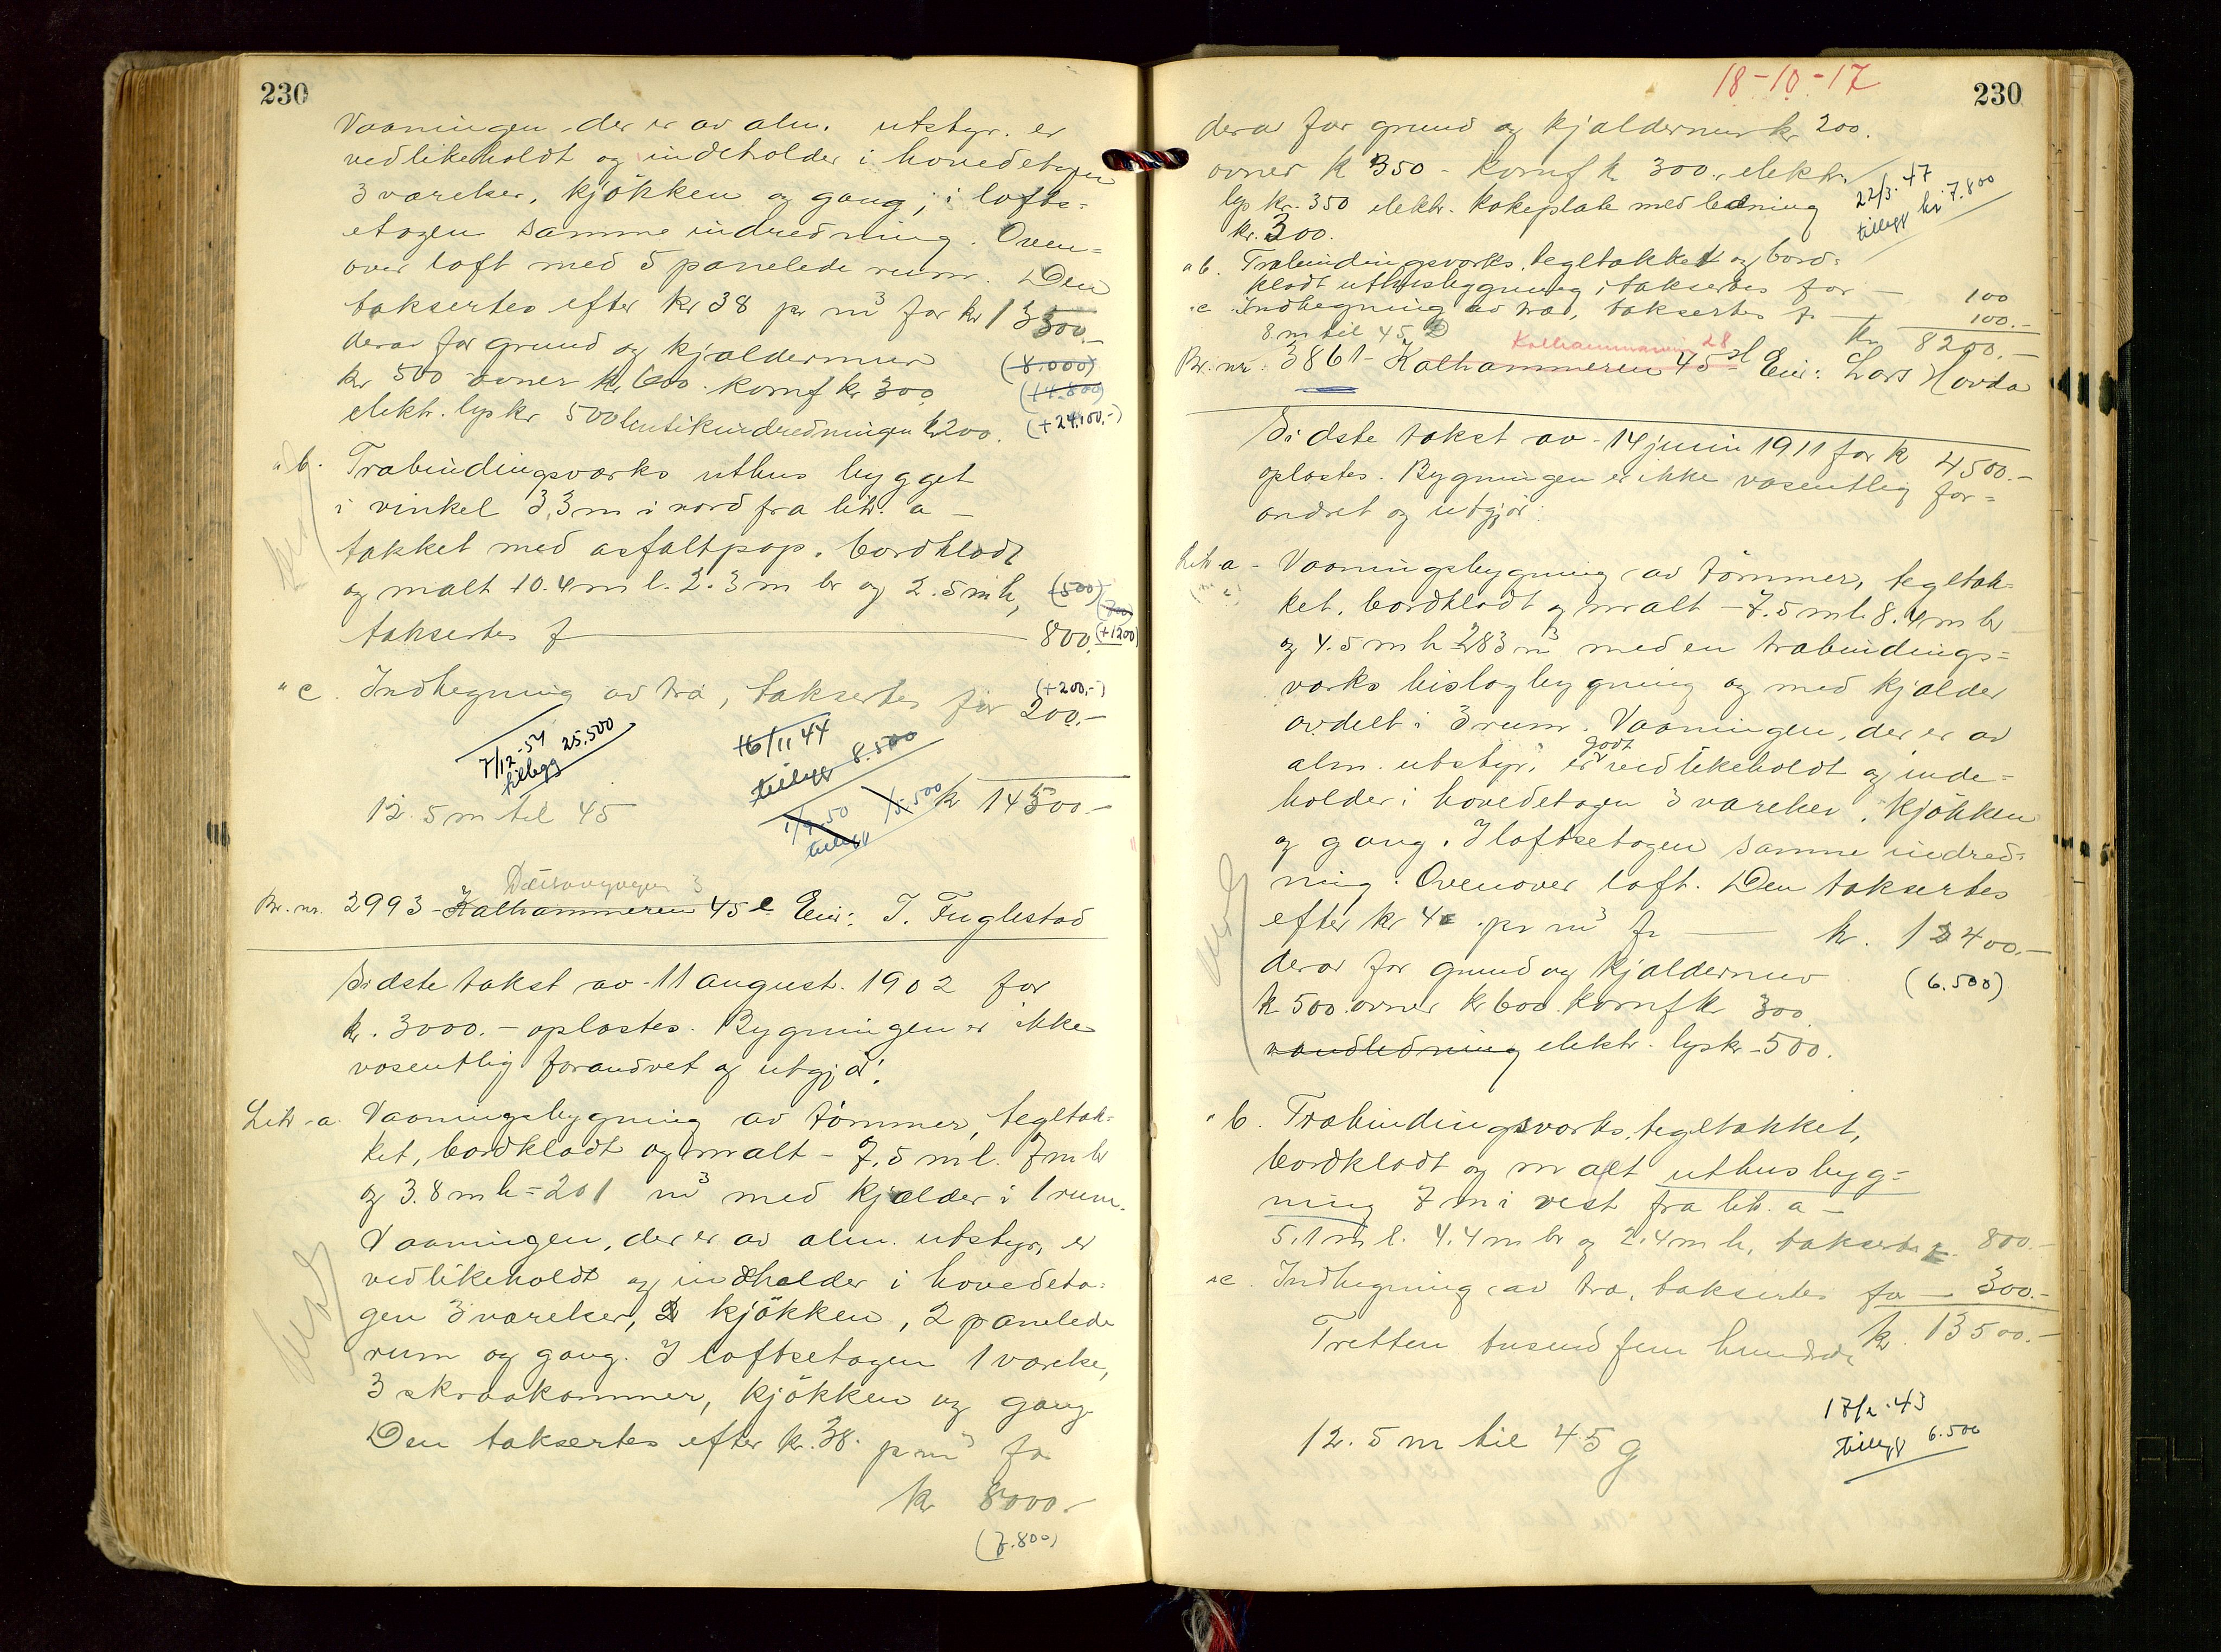 230
Vaaningen der er av alm. utstyr. er
vedlikeholdt og indeholder i hovedetagen
3 værelser, kjökken og gang; i lofts=
etagen samme indredning. Oven=
over loft med 5 panelede rum. Den
taksertes efter kr 38 pr m³ for kr 13500.-
derav for grund og kjældermur (8.000)
kr 500 ovner kr 600. komf kr 300 (14.800)
elektr. lys kr 500 butikindredningen kr 200. (+24,100,-)
" b. Træbindingsværks uthus bygget
i vinkel 3,3 m i nord fra litr. a -
tækket med asfaltpap, bordklædt
og malt 10.4 m l. 2.3 m br og 2.5 m h, (500) (700)
taksertes f 800. (+1200)
" c. Indhegning av træ, taksertes for 200.- (+200.-)
7/12-54 25.500
tillegg
16/11 44
tillegg 8.500
1/9.50 15.500
tillegg
kr 14500.-
12.5 m til 45
Dusavigveien 3
Br. nr. 2993 - Kalhammeren 45 e Eier: T. Fuglestad
Sidste takst av 11 august. 1902 for
kr. 3000.- oplæstes. Bygningen er ikke
væsentlig forandret og utgjör:
Litr a. Vaaningsbygning av tömmer, tegltæk=
ket, bordklædt og malt - 7,5 m l. 7 m br
og 3.8 m h = 201 m³ med kjælder i 1 rum.
Vaaningen, der er av alm. utstyr, er
vedlikeholdt og indholder i hovedeta=
gen 3 værelser, kjökken, 2 panelede
rum og gang. I loftsetagen 1 værelse,
3 skraakammer, kjökken og gang.
Den taksertes efter kr. 38. pr m³ for
kr 8000.-
(7.800)
18-10-17
230
derav for grund og kjældermur kr 200.
ovner kr 350 - komf kr 300. elektr.
lys kr. 350 elektr. kokeplate med ledning
kr. 300.
22/3.47
tillegg kr 7.800
" b. Træbindingsværks, tegltækket og bord=
klædt uthusbygning, taksertes for - 100
" c Indhegning av træ, taksertes f. - 100.-
8 m til 45 kr 8200.-
Kalhammarvn 28
Br. nr. 3861 - Kalhammeren 45 Eier: Lars Hovda
Sidste takst av 14 juni 1911 for kr 4500.-
oplæstes. Bygningen er ikke væsentlig for=
andret og utgjör:
Litr a - Vaaningsbygning av tömmer, tegltæk=
ket, bordklædt og malt - 7.5 m l. 8.4 m br
og 4.5 m h 283 m³ med en træbindings=
værks bislagbygning og med kjælder
avdelt i 3 rum. Vaaningen, der er av
alm. utstyr, er godt vedlikeholdt og inde=
holder i hovedetagen 3 værelser, kjökken
og gang. I loftsetagen samme indred=
ning. Ovenover loft. Den taksertes
efter kr 4 pr m³ for kr. 12400.-
derav for grund og kjældermur (6.500)
kr 500. ovner kr 600. komf kr 300
vandledning elektr. lys kr. 500.
" b. Træbindingsværks, tegltækket,
bordklædt og malt uthusbyg=
ning 7 m i vest fra litr. a -
5.1 m l. 4.4 m br og 2.4 m h, taksertes 800.-
" c. Indhegning av træ, taksertes for - 300.-
Tretten tusend fem hundrede kr. 13500.-
12.5 m til 45 g
tillegg 6.500